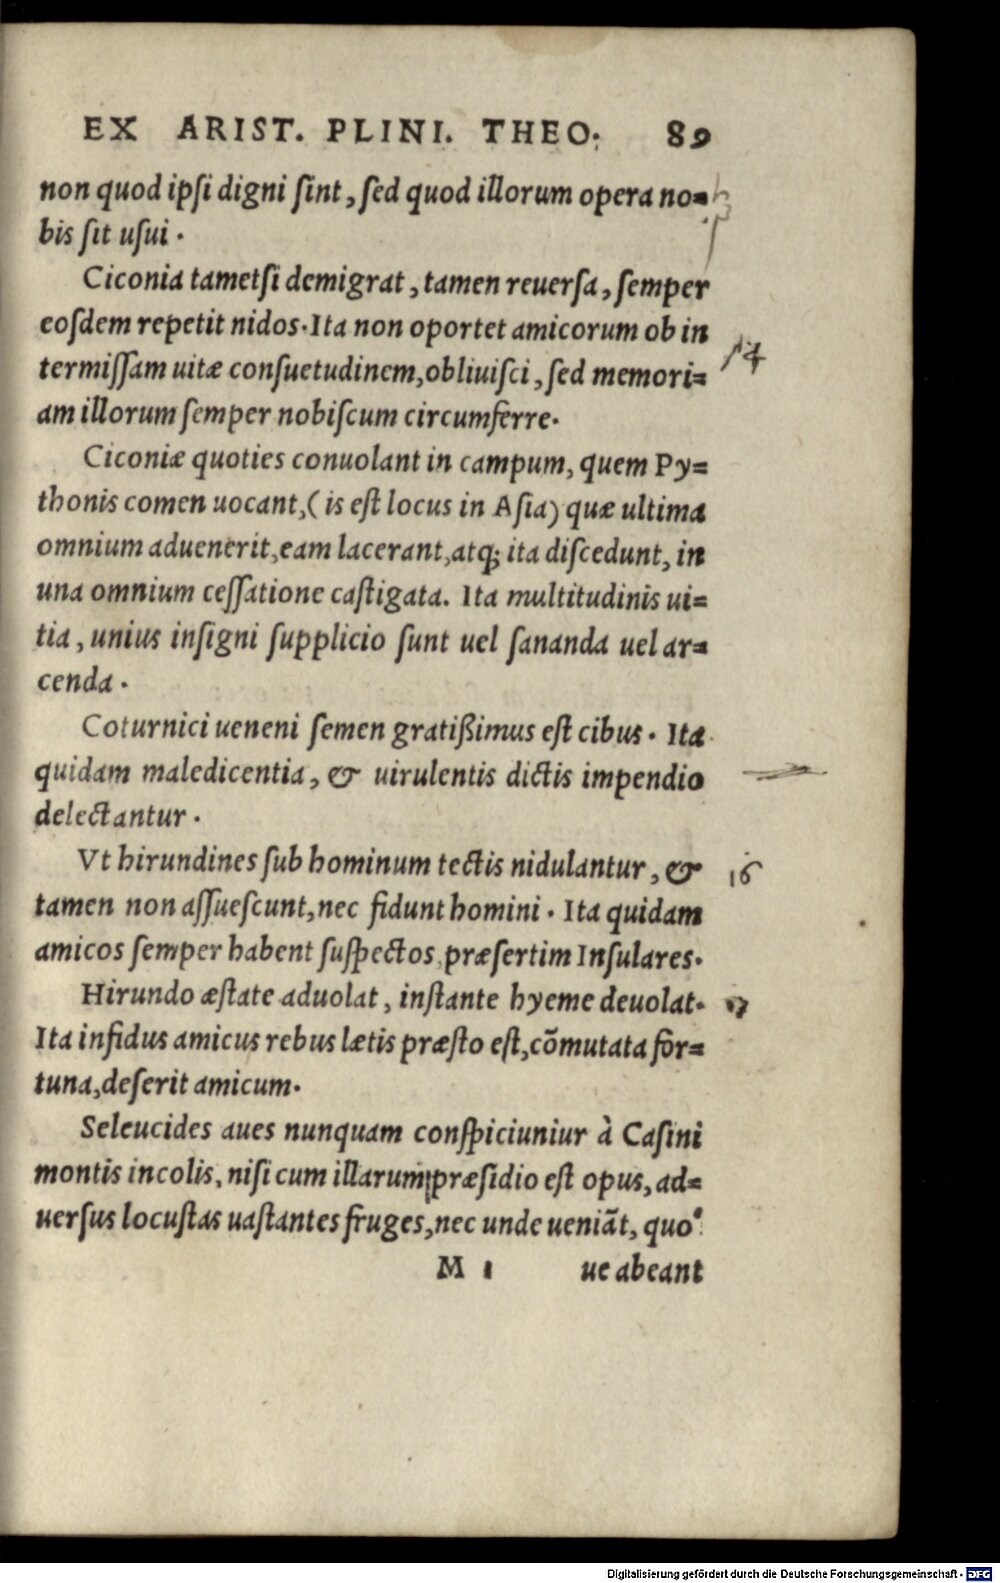 EX ARIST. PLINI. THEO. 89
non quod ipſi digni ſint, ſed quod illorum opera no=
bis ſit uſui.
Ciconia tametſi demigrat, tamen reuerſa, ſemper
eoſdem repetit nidos. Ita non oportet amicorum ob in
termiſſam uitæ conſuetudinem, obliuiſci, ſed memori=
am illorum ſemper nobiſcum circumferre.
Ciconiæ quoties conuolant in campum, quem Py=
thonis comen uocant, (is eſt locus in Aſia) quæ ultima
omnium aduenerit, eam lacerant, atq; ita diſcedunt, in
una omnium ceſſatione caſtigata. Ita multitudinis ui=
tia, unius inſigni ſupplicio ſunt uel ſananda uel ar=
cenda.
Coturnici ueneni ſemen gratißimus eſt cibus. Ita
quidam maledicentia, & uirulentis dictis impendio
delectantur.
Vt hirundines ſub hominum tectis nidulantur, &
tamen non aſſueſcunt, nec fidunt homini. Ita quidam
amicos ſemper habent ſuſpectos, præſertim Inſulares.
Hirundo æſtate aduolat, inſtante hyeme deuolat.
Ita infidus amicus rebus lætis præſto eſt, cõmutata for=
tuna, deſerit amicum.
Seleucides aues nunquam conſpiciuniur à Caſini
montis incolis, niſi cum illarum præſidio eſt opus, ad=
uerſus locuſtas uaſtantes fruges, nec unde ueniãt, quo
M 1 ue abeant
14
16
17
Digitalisierung gefördert durch die Deutsche Forschungsgemeinschaft - DFG